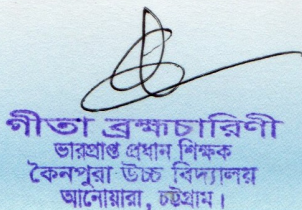 গীতা ব্রহ্মচারিণী
ভারপ্রাপ্ত প্রধান শিক্ষক
কৈনপুরা উচ্চ বিদ্যালয়
আনোয়ারা, চট্টগ্রাম।